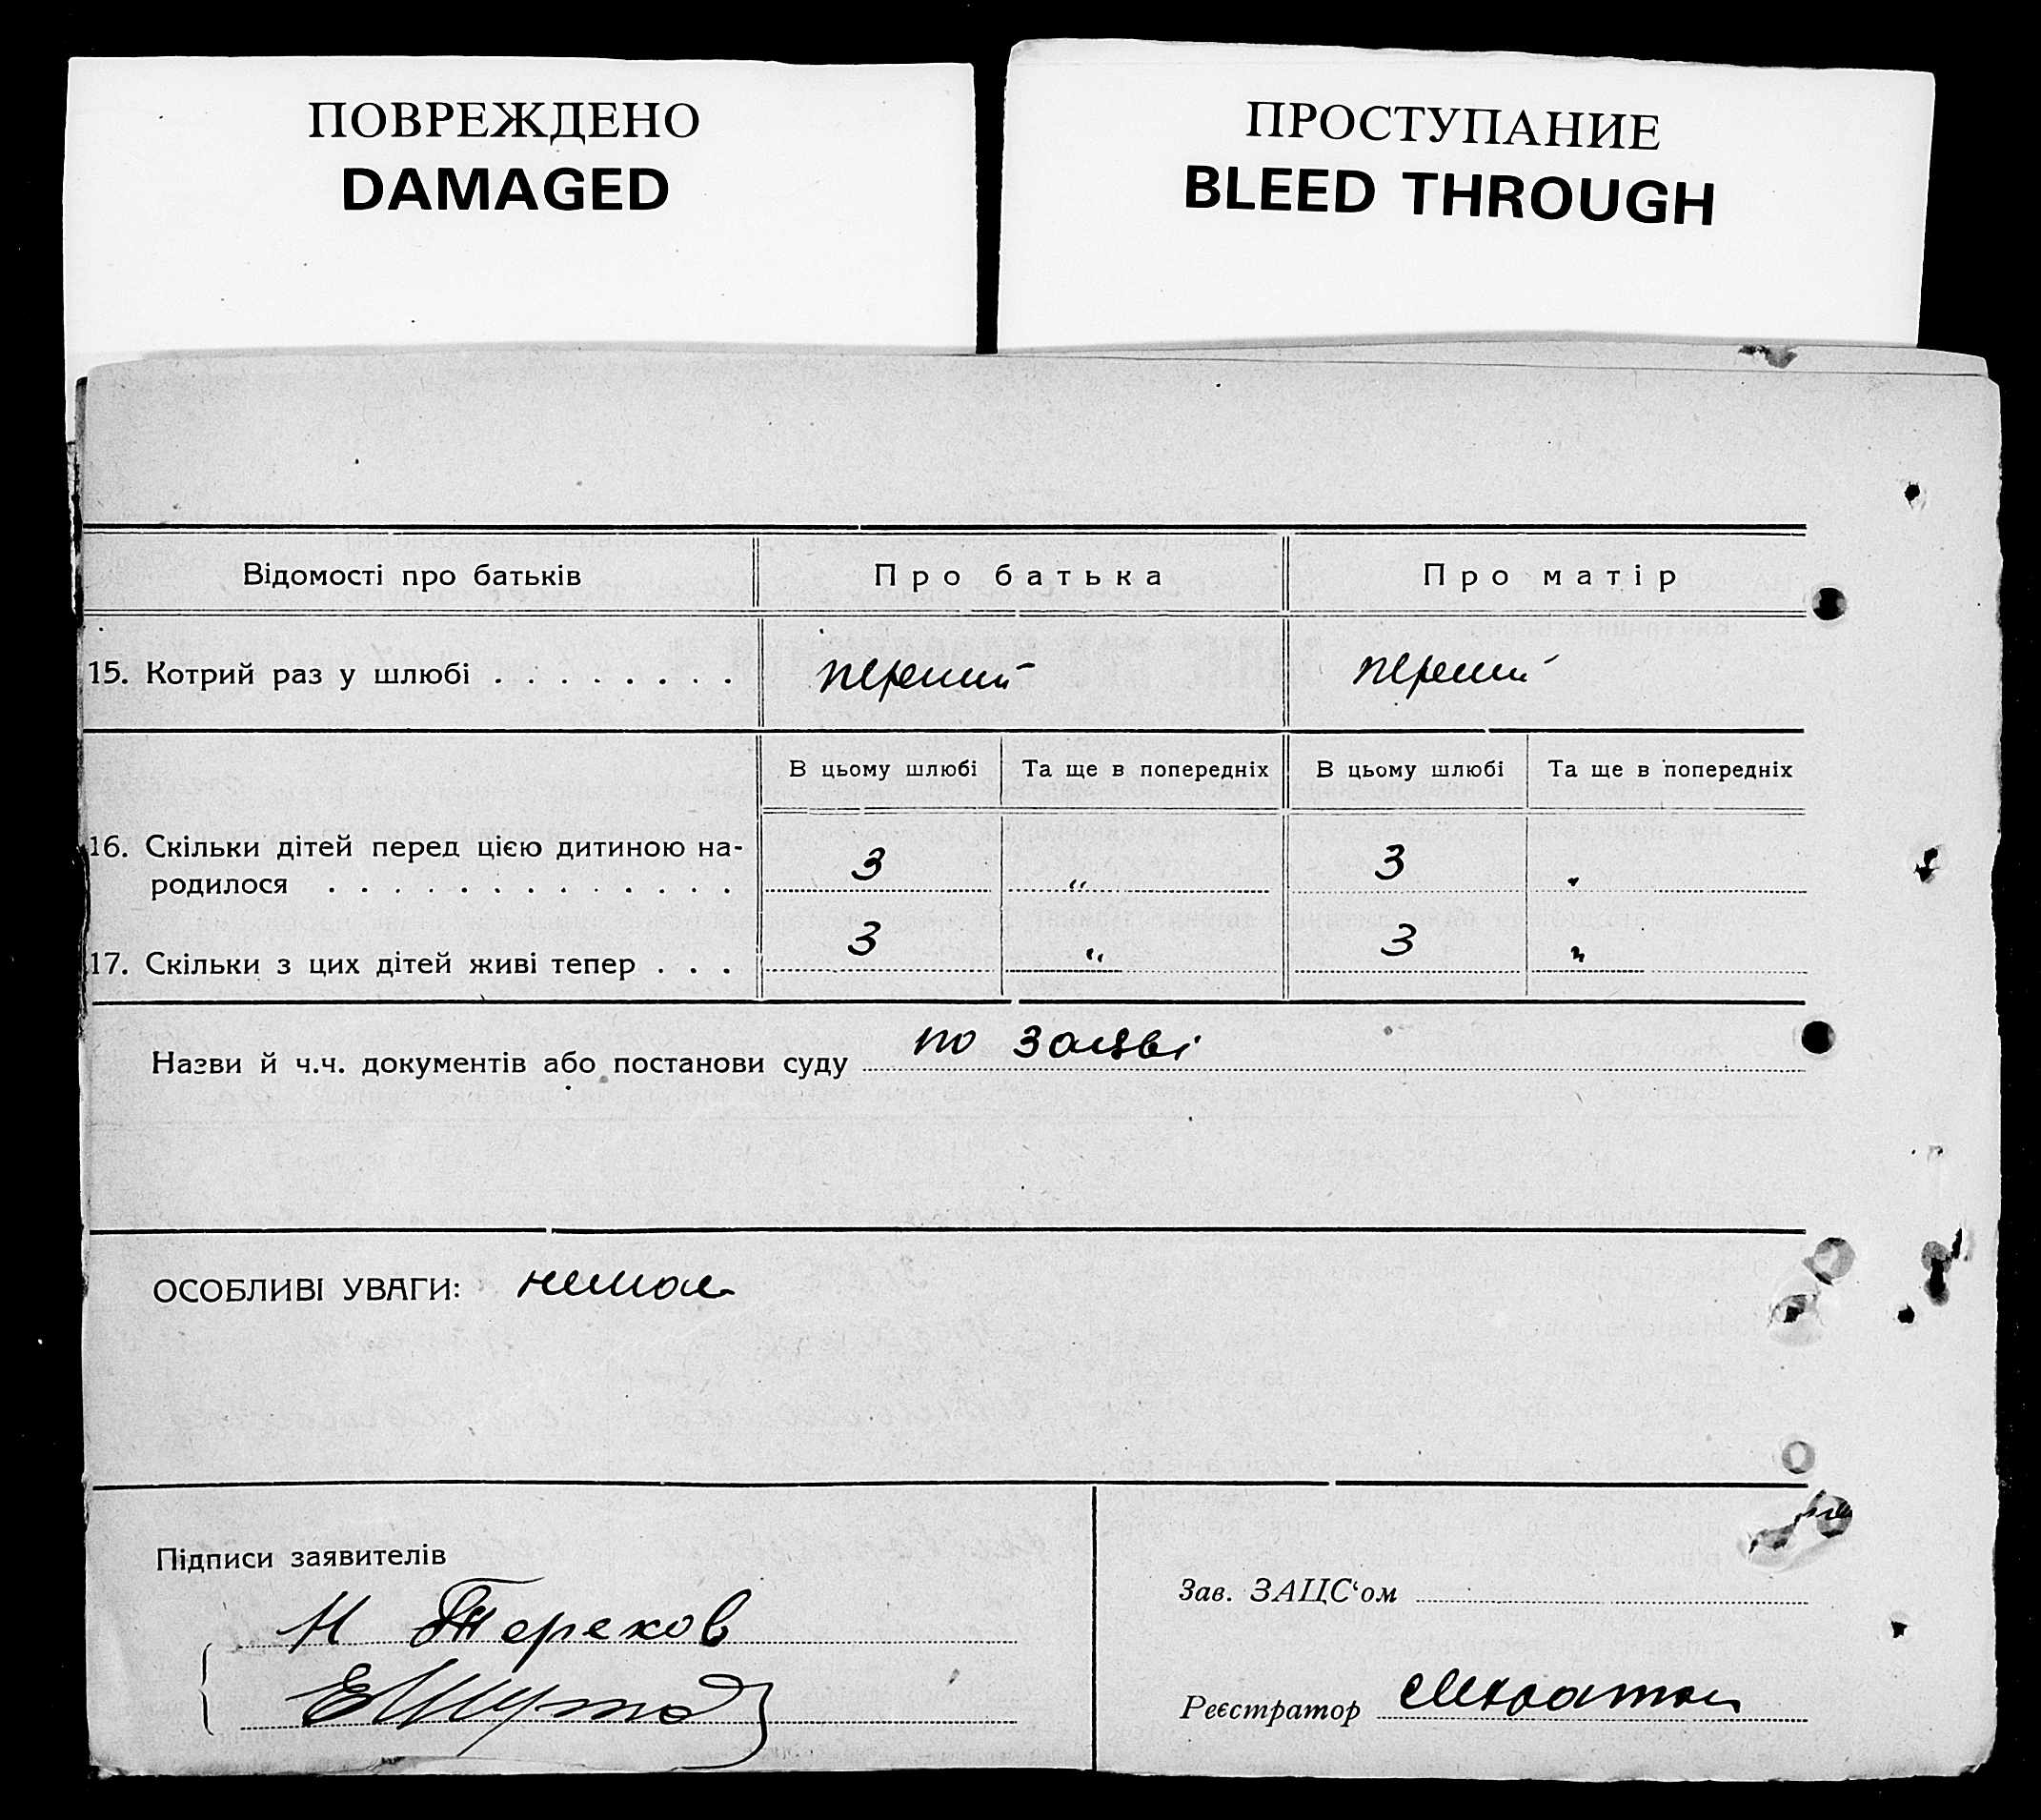 ПОВРЕЖДЕНО
DAMAGED
ПРОСТУПАНИЕ
BLEED THROUGH
Відомості про батьків Про батька Про матір
15. Котрий раз у шлюбі . . . . . . . . перший перший
В цьому шлюбі Та ще в попередніх В цьому шлюбі Та ще в попередніх
16. Скільки дітей перед цією дитиною на-
родилося . . . . . . . . . . . . . . 3 „ 3 „
17. Скільки з цих дітей живі тепер . . . 3 „ 3 „
Назви й ч.ч. документів або постанови суду по заяві
ОСОБЛИВІ УВАГИ: немає
Підписи заявителів
Н Терехов
Зав. ЗАЦС‘ом
Реєстратор